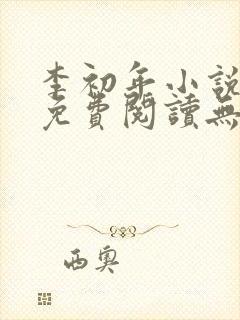 李初年小說
免費閱讀無
西奧